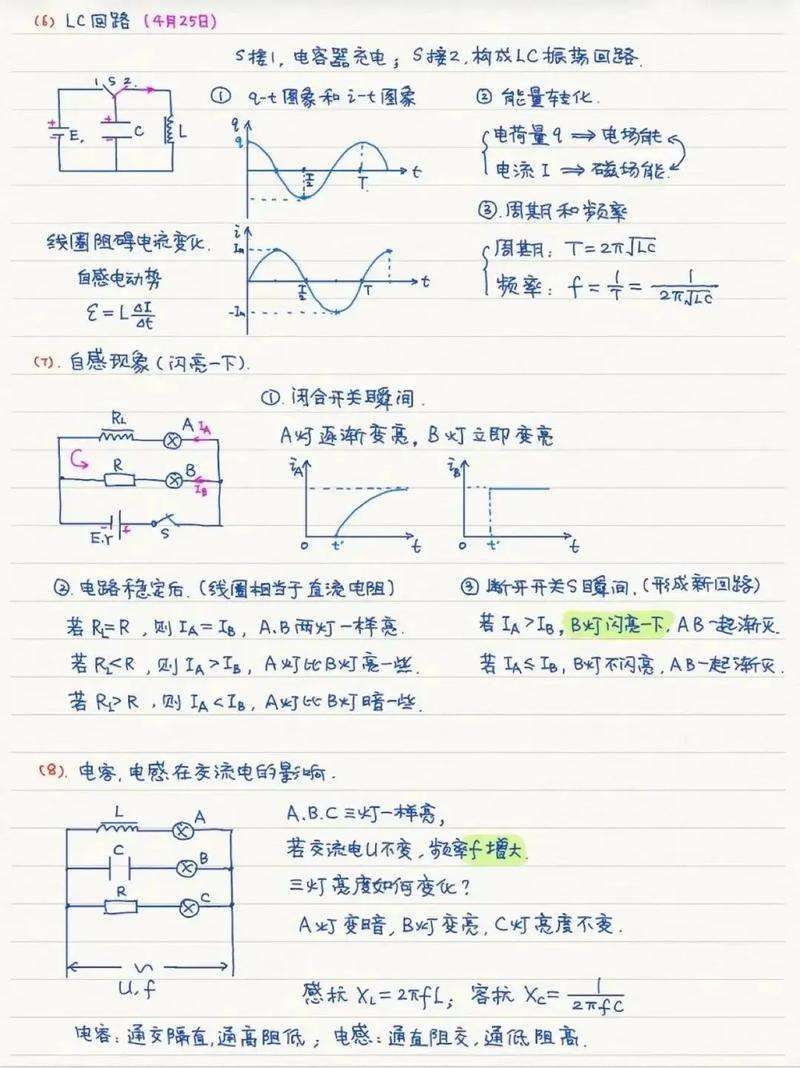 (6) LC回路 (4月25日)
S接1,电容器充电; S接2,构成LC振荡回路.
1 S 2
E, C L
① q-t图象和i-t图象
q
q
T/2 T t
i
Im
T/2 T t
-Im
② 能量转化.
电荷量q ⟹ 电场能
电流I ⟹ 磁场能.
③.周期和频率
周期: T=2π√LC
频率: f=1/T=1/(2π√LC)
线圈阻碍电流变化.
自感电动势
ε=LΔI/Δt
(7).自感现象(闪亮一下).
RL A IA
R B IB
E.r S
①.闭合开关瞬间.
A灯逐渐变亮, B灯立即变亮
iA iB
0 t' t 0 t' t
②.电路稳定后.(线圈相当于直流电阻)
若RL=R,则IA=IB, A.B两灯一样亮.
若RL<R,则IA>IB, A灯比B灯亮一些.
若RL>R,则IA<IB, A灯比B灯暗一些.
③断开开关S瞬间,(形成新回路)
若IA>IB,B灯闪亮一下,AB一起渐灭.
若IA≤IB,B灯不闪亮,AB一起渐灭.
(8).电容,电感在交流电的影响.
L A
C B
R C
~
U,f
A.B.C三灯一样亮,
若交流电U不变,频率f增大.
三灯亮度如何变化?
A灯变暗,B灯变亮,C灯亮度不变.
感抗XL=2πfL; 容抗XC=1/(2πfC)
电容:通交隔直,通高阻低; 电感:通直阻交,通低阻高.